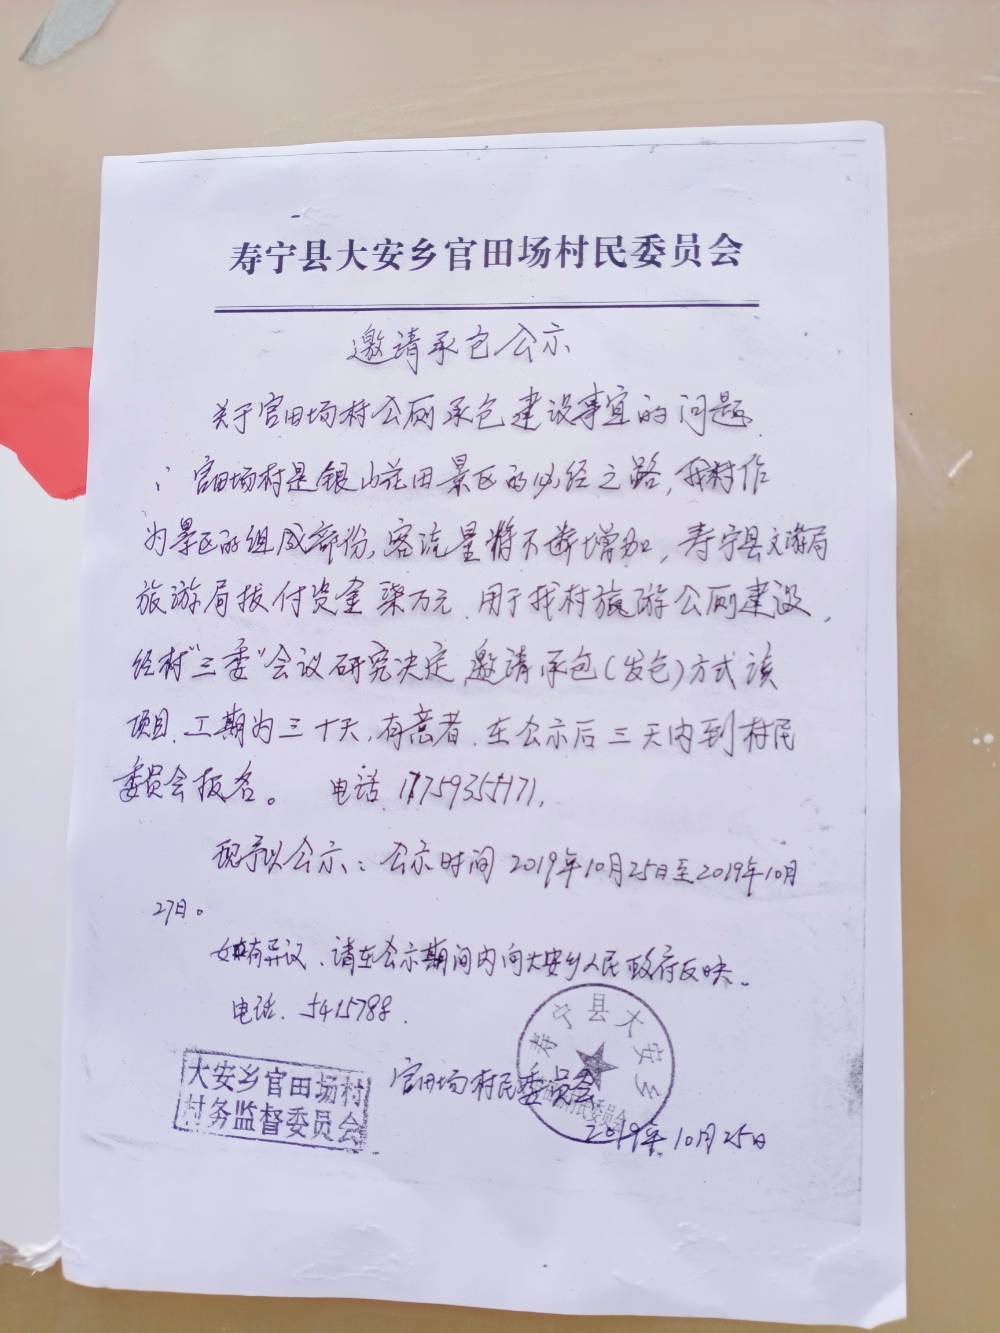 寿宁县大安乡官田场村民委员会
邀请承包公示
关于官田场村公厕承包建设事宜的问题
：官田场村是银山花田景区的必经之路，我村作
为景区的组成部份，客流量将不断增加，寿宁县文游局
旅游局拔付资金柒万元，用于我村旅游公厕建设，
经村"三委"会议研究决定，邀请承包（发包）方式该
项目，工期为三十天，有意者，在公示后三天内到村民
委员会报名。 电话
现予以公示：公示时间2019年10月25日至2019年10月
27日。
如有异议，请在公示期间内向大安乡人民政府反映。
电话．5415788．
寿宁县大安乡
大安乡官田场村
村务监督委员会
官田场村民委员会
2019年10月25日